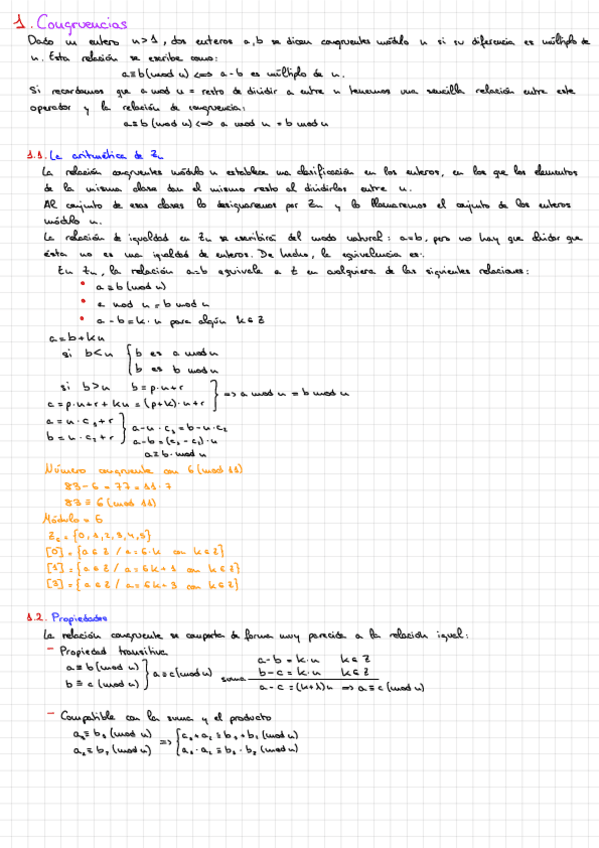 1. Congruencias
Dado un entero n>1, dos enteros a,b se dicen congruentes módulo n si su diferencia es múltiplo de
n. Esta relación se escribe como:
a≡b(mod n) <=> a-b es múltiplo de n.
Si recordamos que a mod n = resto de dividir a entre n tenemos una sencilla relación entre este
operador y la relación de congruencia:
a≡b (mod n) <=> a mod n = b mod n
1.1. La aritmética de Zn
La relación congruentes módulo n establece una clasificación en los enteros, en los que los elementos
de la misma clase dan el mismo resto al dividirlos entre n.
Al conjunto de esas clases lo designaremos por Zn y lo llamaremos el conjunto de los enteros
módulo n.
La relación de igualdad en Zn se escribirá del modo natural: a=b, pero no hay que olvidar que
ésta no es una igualdad de enteros. De hecho, la equivalencia es:
En Zn, la relación a=b equivale a cualquiera de las siguientes relaciones:
• a≡b(mod n)
• a mod n = b mod n
• a-b=k·n para algún k∈Z
a=b+kn
si b<n { b es a mod n
b es b mod n
si b>n b=p·n+r
a=p·n+r+kn=(p+k)·n+r } => a mod n = b mod n
a=n·c₁+r
b=n·c₂+r } a-n·c₁=b-n·c₂
a-b=(c₁-c₂)·n
a≡b mod n
Número congruente con 6 (mod 11)
83-6=77=11·7
83≡6(mod 11)
Módulo=6
Z₆={0,1,2,3,4,5}
[0]={a∈Z / a=6·k con k∈Z}
[1]={a∈Z / a=6k+1 con k∈Z}
[3]={a∈Z / a=6k+3 con k∈Z}
1.2. Propiedades
La relación congruente se comporta de forma muy parecida a la relación igual:
- Propiedad transitiva
a≡b(mod n)
b≡c(mod n) } a≡c(mod n)
suma
a-b=k·n k∈Z
b-c=k·n k∈Z
a-c=(k+λ)n => a≡c(mod n)
- Compatible con la suma y el producto
a₁≡b₁(mod n)
a₂≡b₂(mod n) => { a₁+a₂≡b₁+b₂(mod n)
a₁·a₂≡b₁·b₂(mod n)